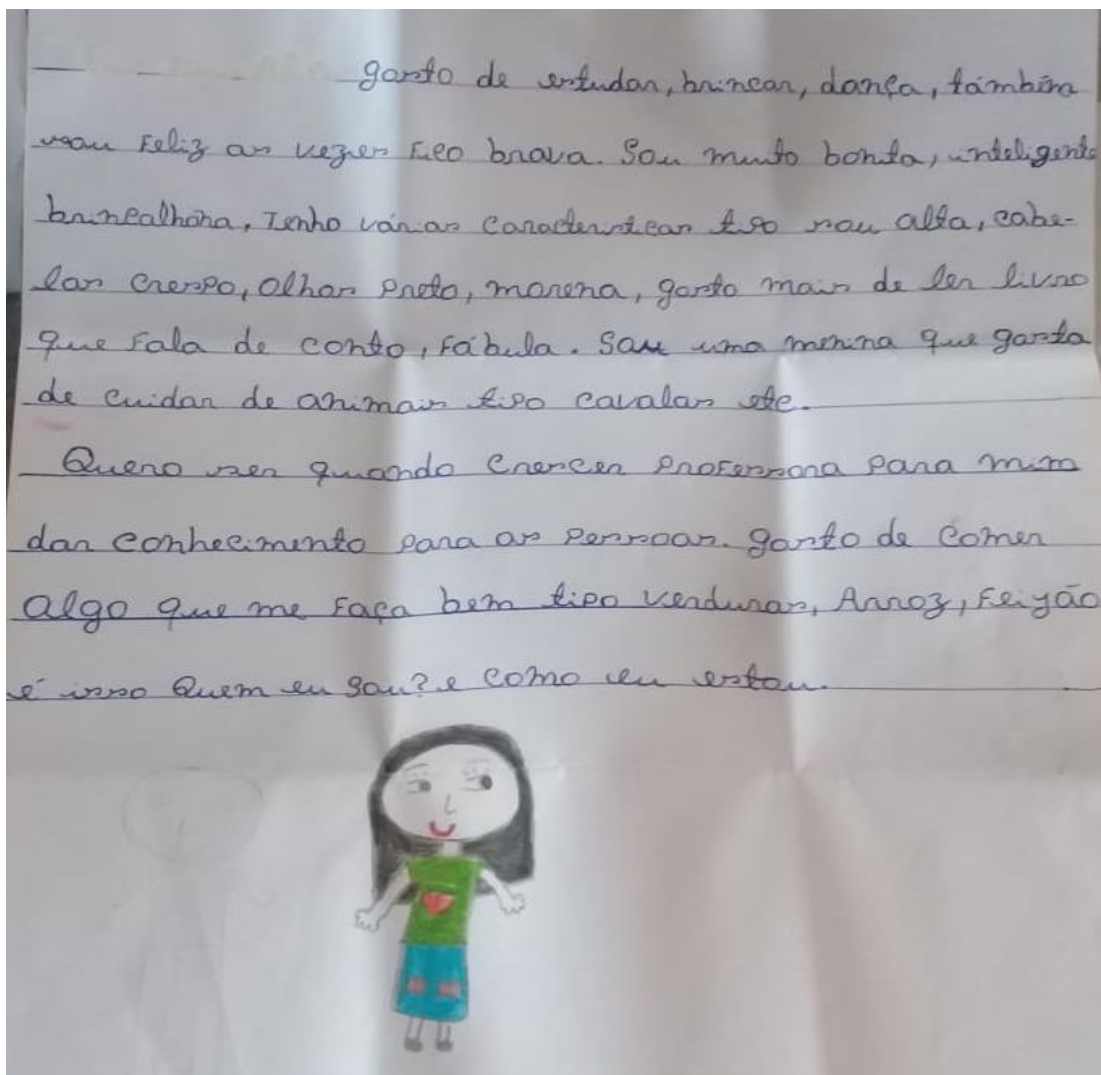 gosto de estudar, brincar, dança, também
sou Feliz as vezes Fico brava. Sou muito bonita, inteligente
brincalhona, Tenho várias caracteristicas tipo sou alta, cabe-
los crespo, olhos preto, morena, gosto mais de ler livro
que Fala de conto, Fábula. Sou uma menina que gosta
de cuidar de animais tipo cavalos etc.
Quero ser quando crescer professora para mim
dar conhecimento para as pessoas. gosto de comer
algo que me Faça bem tipo verduras, Arroz, Feijão
é isso Quem eu sou? e como eu estou.